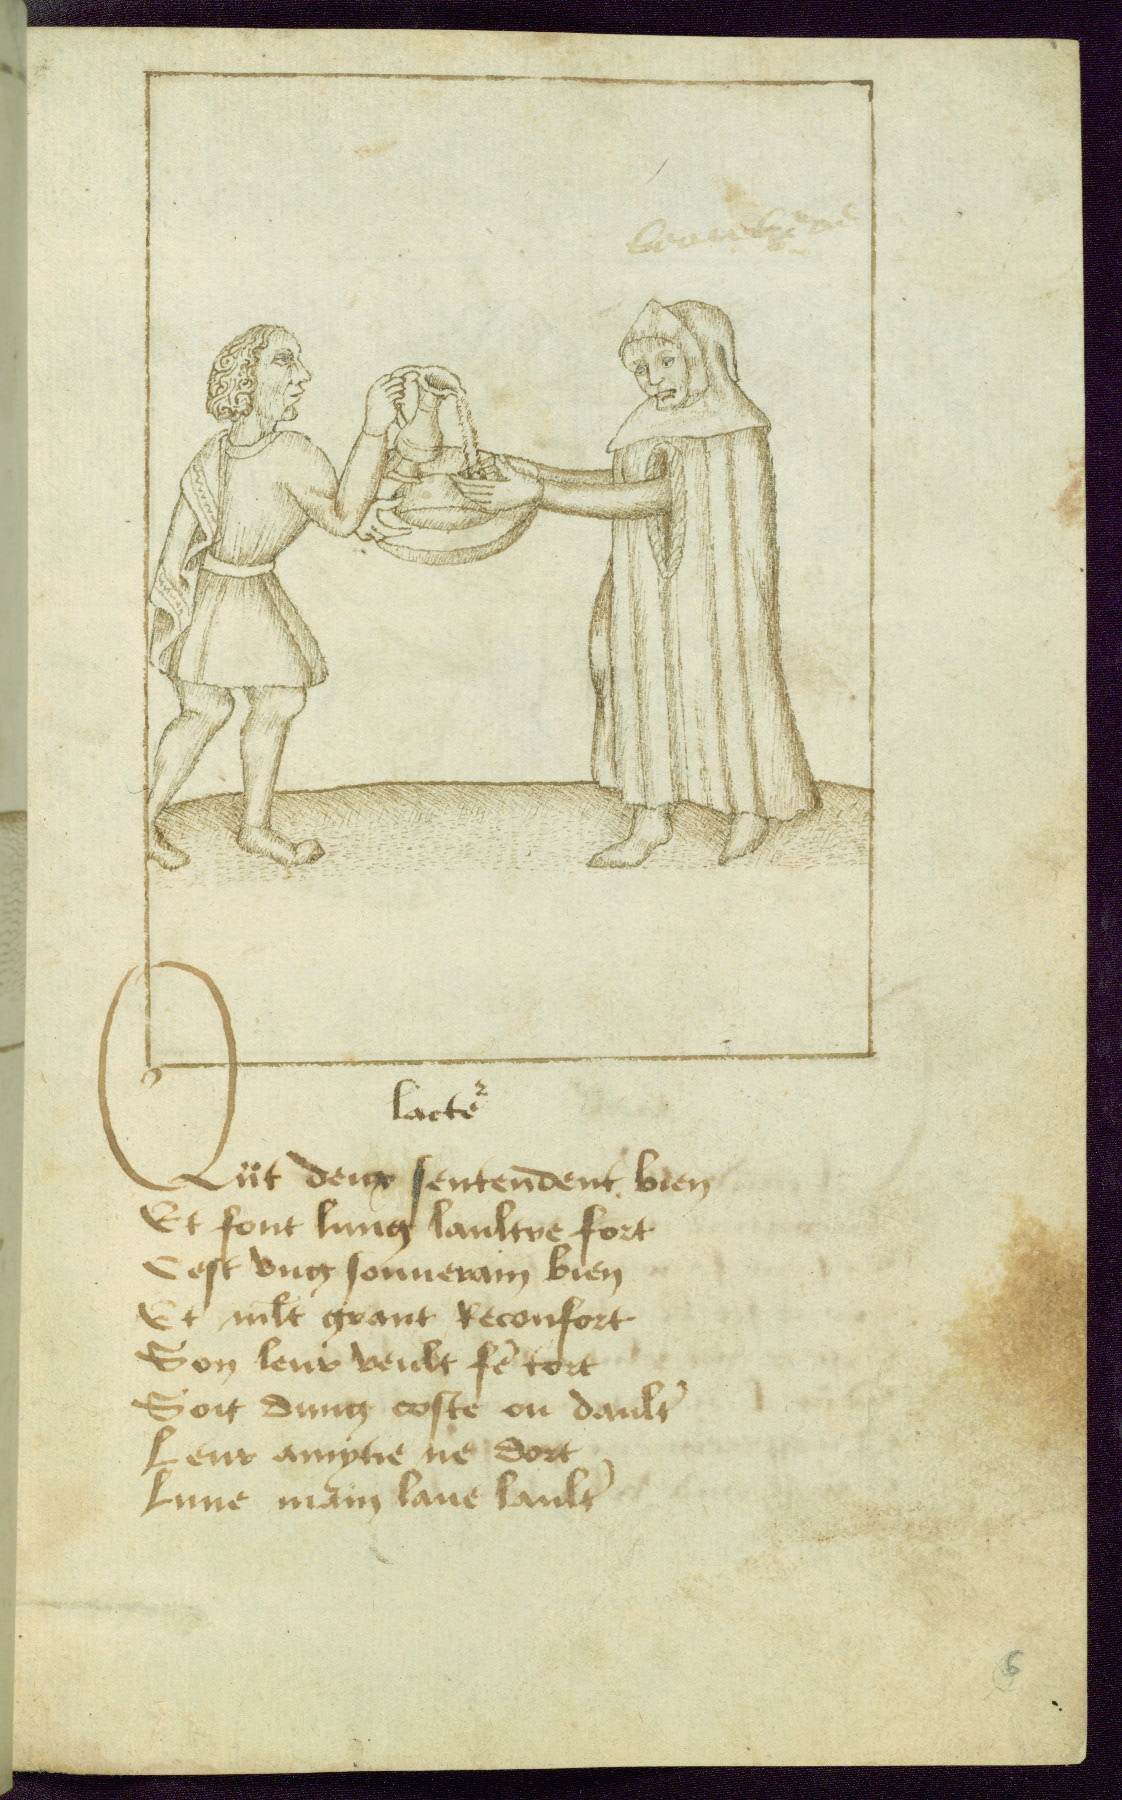 lacte͛
Qūt deux sentendent bien
Et font lung laultre fort
Cest vng souuerain bien
Et mlt grant Reconfort
Son leur veult fē tort
Soit dung coste ou dault͛
Leur amytie ne dort
Lune main laue lault͛
6